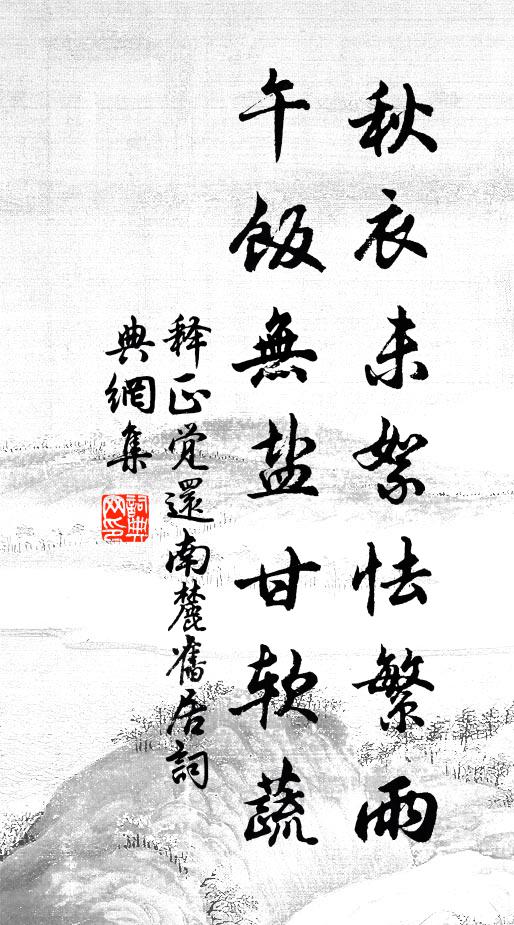 秋衣未絮怯繁雨
午飯無盐甘软蔬
释正觉還南麓舊居詞
典網集
詞典
网印